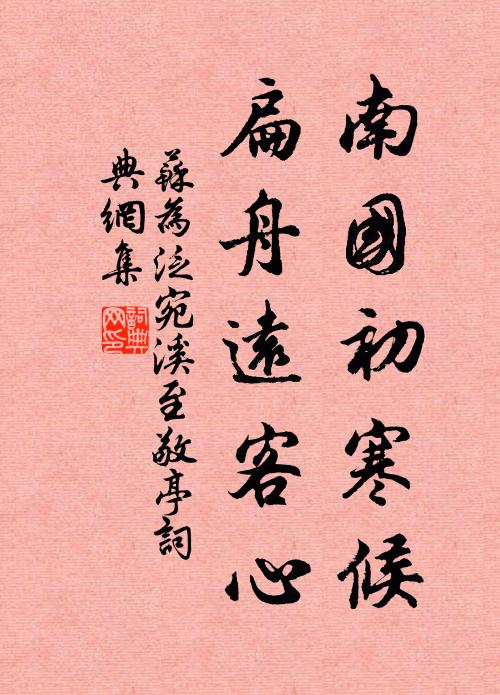 南國初寒候
扁舟遠客心
蘇為泛宛溪至敬亭詞
典網集
詞典
网印